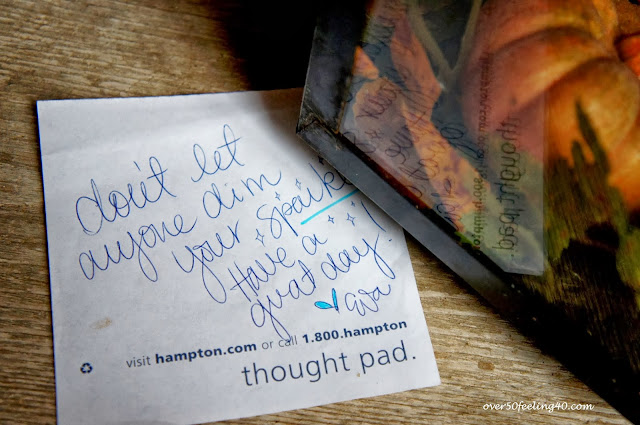 don't let
anyone dim
your spark
Have a
great day!
visit hampton.com or call 1.800.hampton
thought pad.
over50feeling40.com